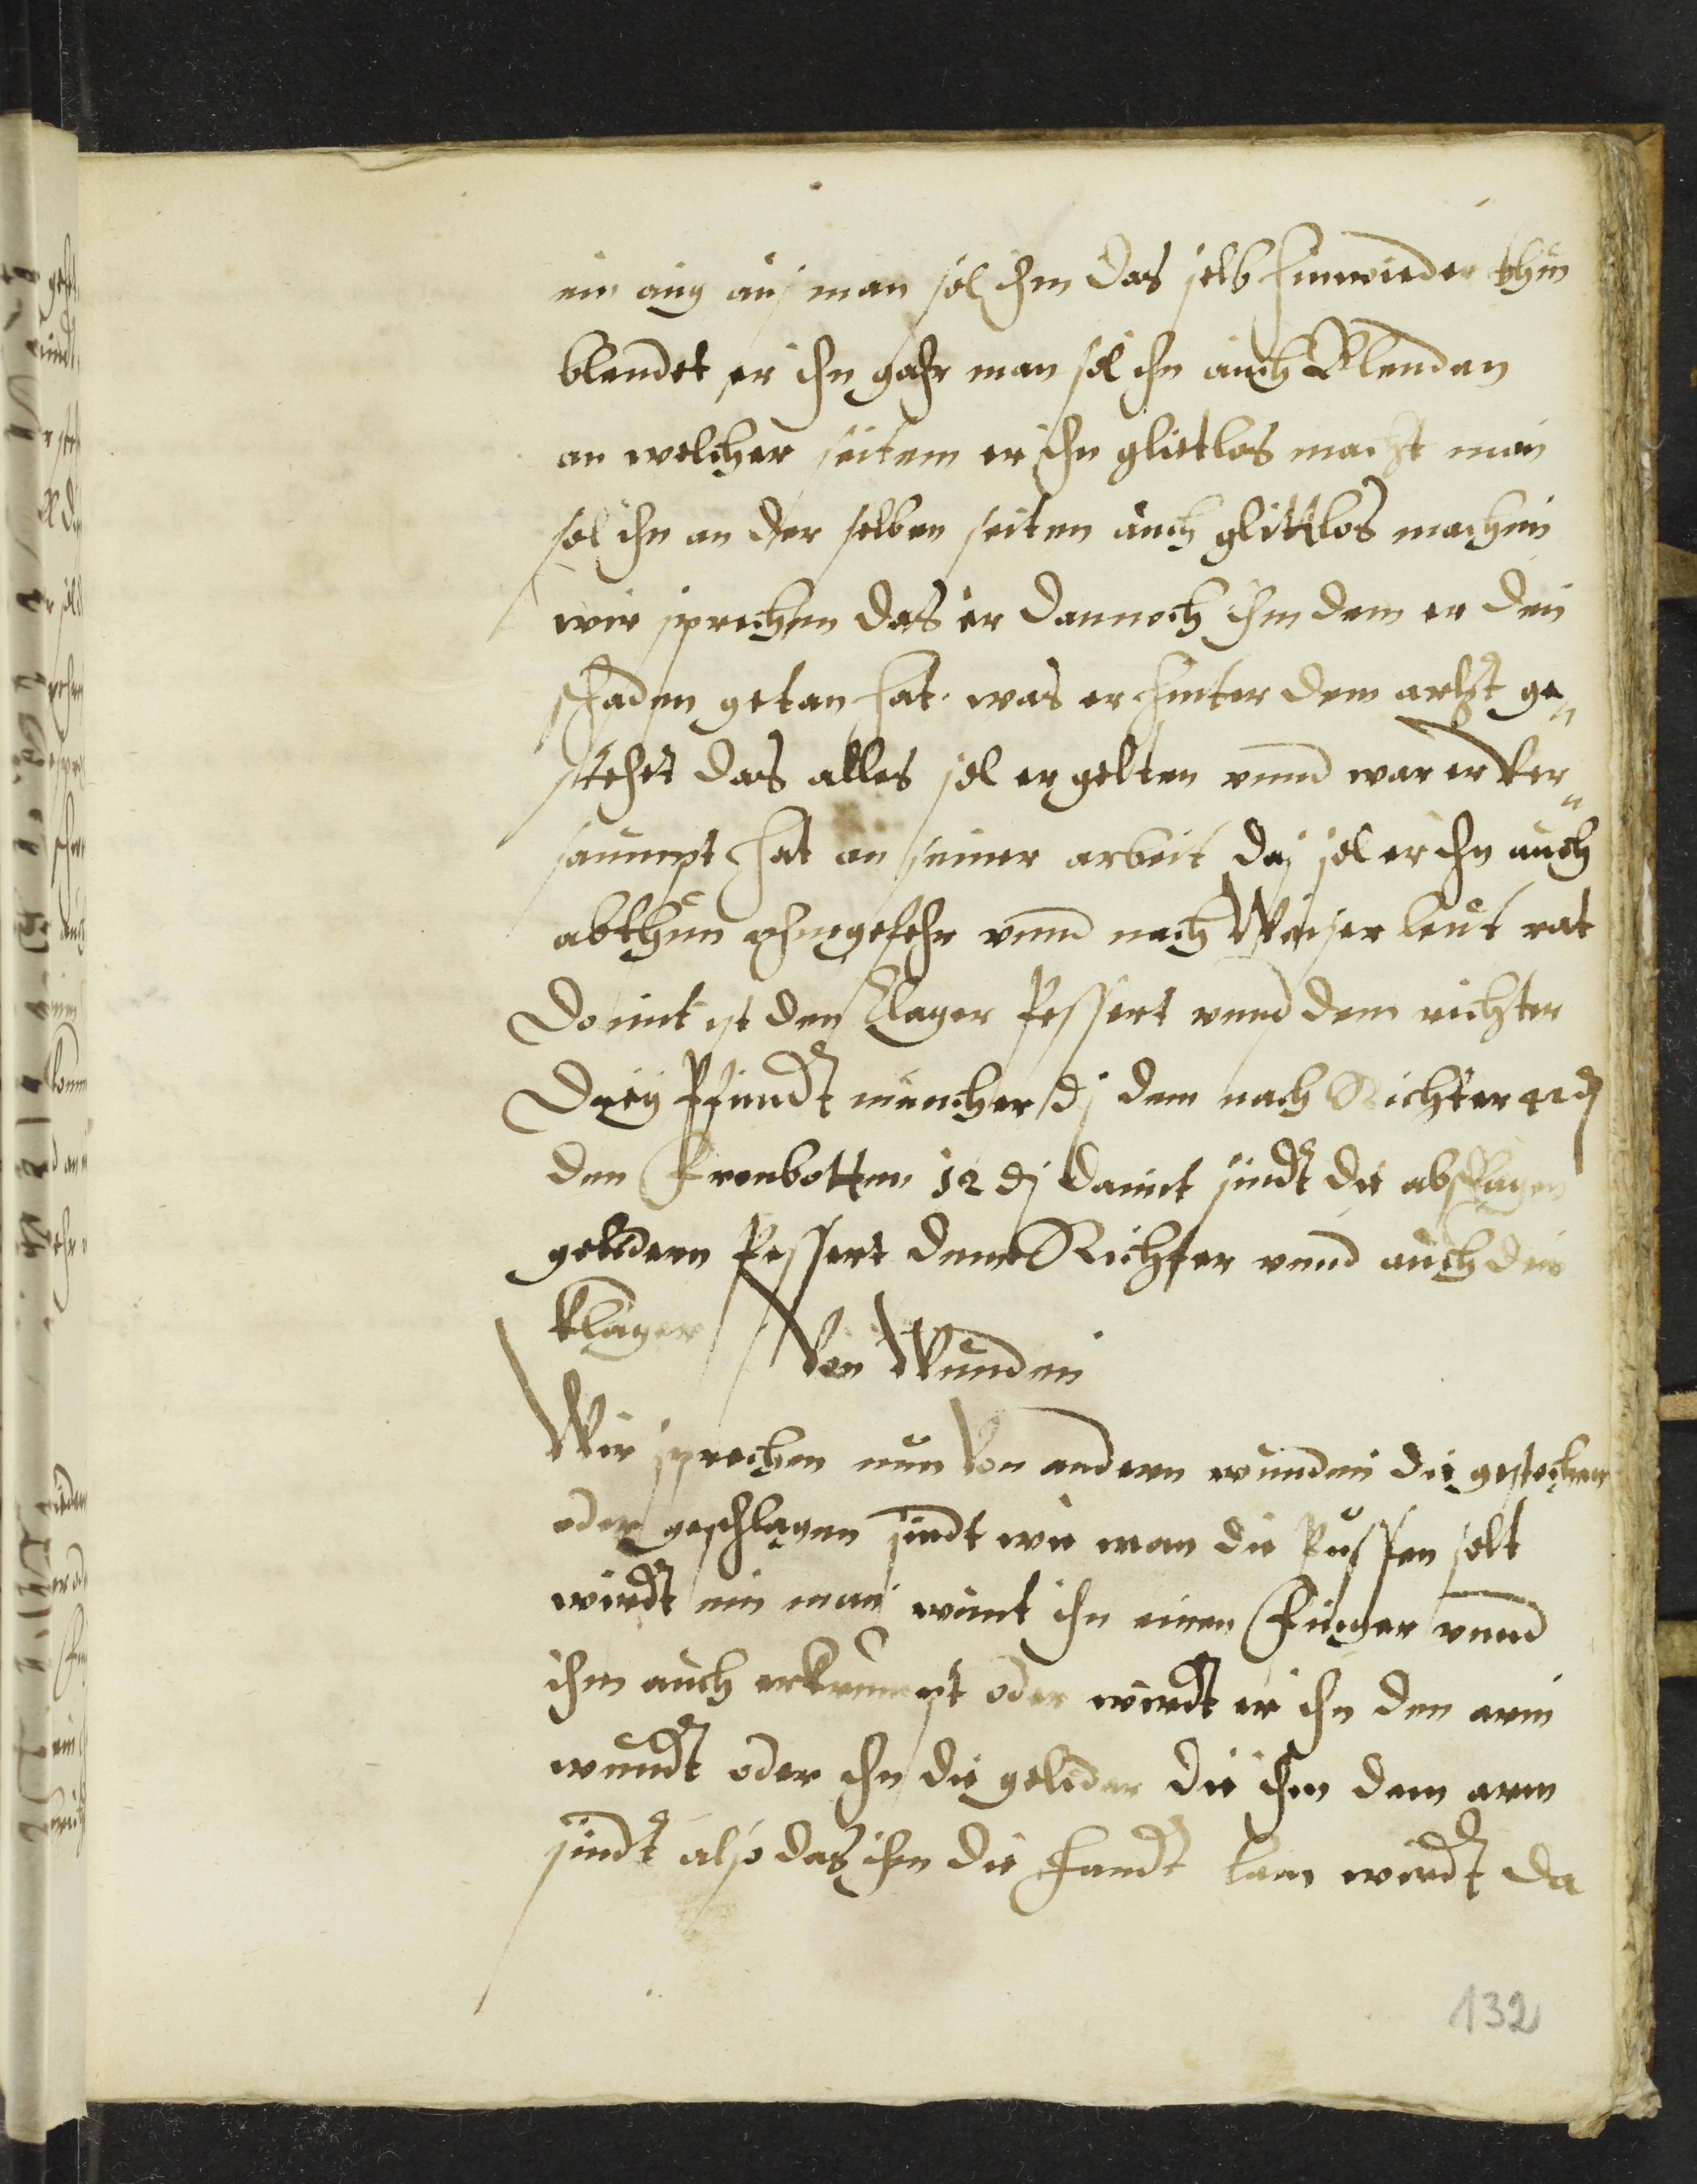 ein aug aus man sol ihm das selb hinwieder thun
blendet er ihn gahr man sol ihn auch Blenden
an welcher seitenn er ihn glietlos macht man
sol ihn an der selben seiten auch glittlos machenn
wir sprechenn das er dannoch ihm dem er den
schaden getan hat was er hinter dem artzt ge„
stehet das alles sol er gelten vnnd war er ver„
saumpt hat an seiner arbeit das sol er ihn auch
abthun vngefehr vnnd nach Weiser leut rat
Domit ist den Clager Pessert vnnd dem richter
Dreÿ Pfundt muncher dj dem nach Richter 42 dj
den Fronbotten 12 dj damit sindt die abschlagen
gelidern Pessert dem Richter vnnd auch dem
klager
Von Wunden
Wir sprechen nun von andern wunden die gestochen
oder geschlagen sindt wie man die Pussen solt
wirdt ein man wunt ihn einen Finger vnnd
ihm auch erkrumpt oder wirdt er ihn den arm
wundt oder ihn die gelider die ihm dem arm
sindt also das ihm die handt lam wirdt da
132